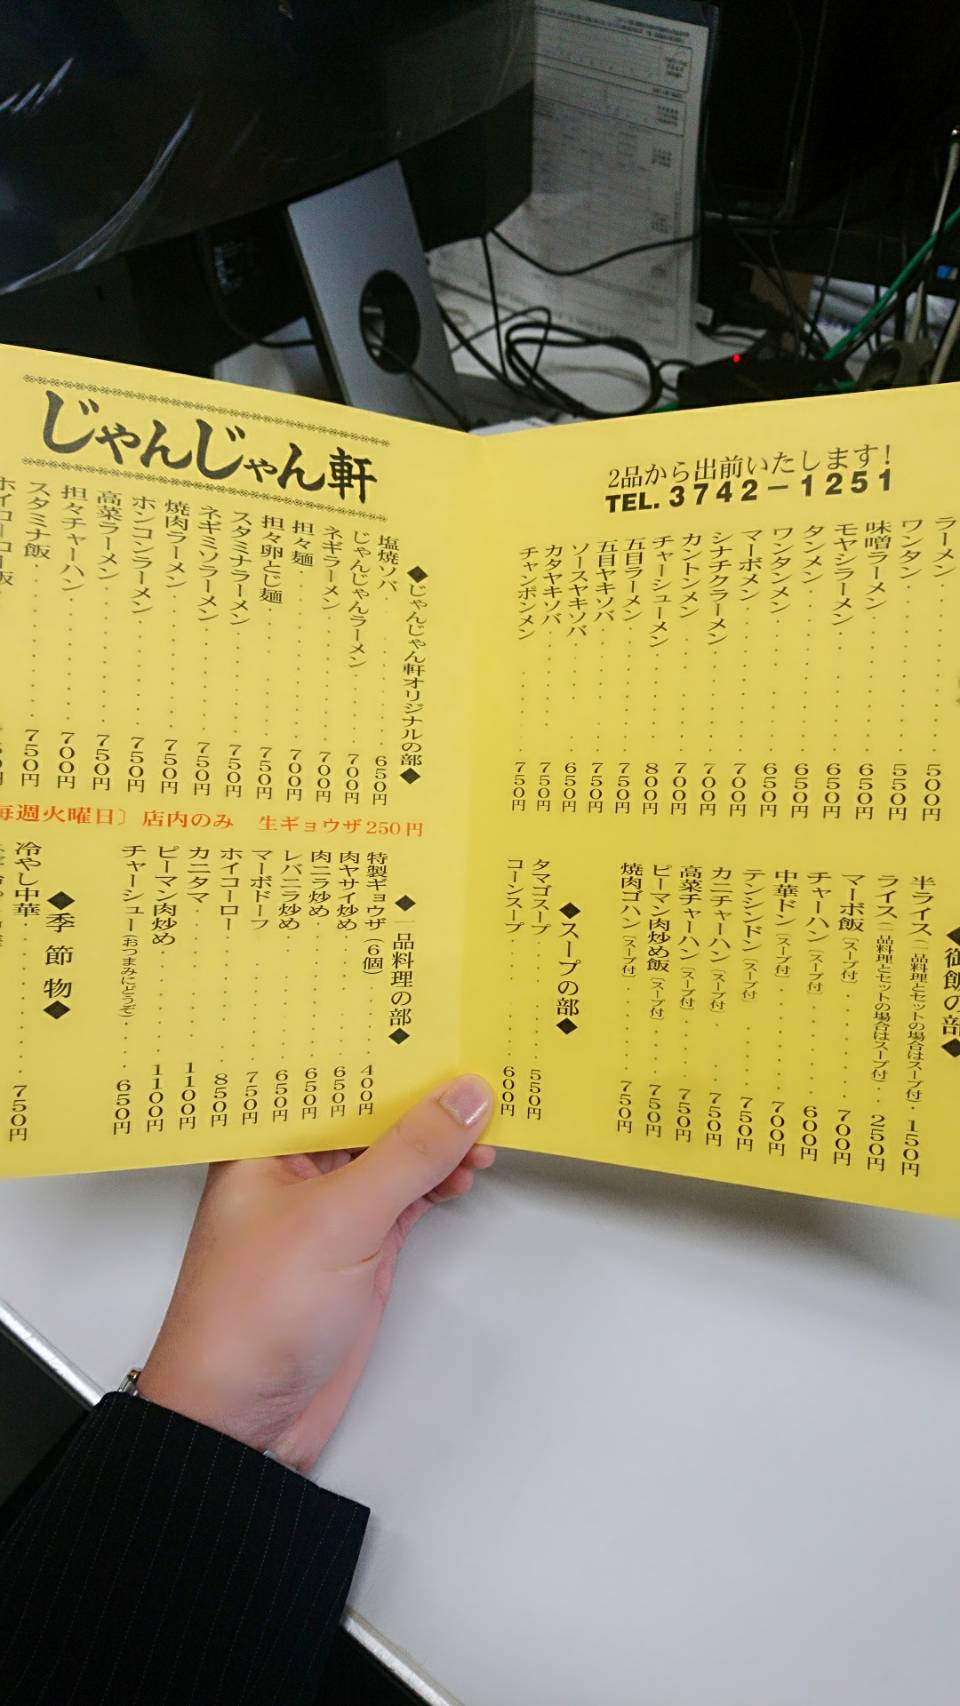 じゃんじゃん軒
◆じゃんじゃん軒オリジナルの部◆
塩焼ソバ 650円
じゃんじゃんラーメン 700円
ネギラーメン 700円
担々麺 700円
担々卵とじ麺 750円
スタミナラーメン 750円
ネギミソラーメン 750円
焼肉ラーメン 750円
ホンコンラーメン 750円
高菜ラーメン 750円
担々チャーハン 700円
スタミナ飯 750円
ホイコーロー飯
毎週火曜日〕店内のみ 生ギョウザ250円
◆一品料理の部◆
特製ギョウザ(6個) 400円
肉ヤサイ炒め 650円
肉ニラ炒め 650円
レバニラ炒め 650円
マーボドーフ 750円
ホイコーロー 850円
カニタマ 1100円
ピーマン肉炒め 1100円
チャーシュー(おつまみにどうぞ) 650円
◆季節物◆
冷やし中華 750円
2品から出前いたします!
TEL.3742-1251
ラーメン 500円
ワンタン 550円
味噌ラーメン 650円
モヤシラーメン 650円
タンメン 650円
ワンタンメン 650円
マーボメン 700円
シナチクラーメン 700円
カントンメン 700円
チャーシューメン 800円
五目ラーメン 750円
五目ヤキソバ 750円
ソースヤキソバ 650円
カタヤキソバ 750円
チャンポンメン 750円
◆御飯の部◆
半ライス(一品料理とセットの場合はスープ付) 150円
ライス(一品料理とセットの場合はスープ付) 250円
マーボ飯(スープ付) 700円
チャーハン(スープ付) 600円
中華ドン(スープ付) 700円
テンシンドン(スープ付) 750円
カニチャーハン(スープ付) 750円
高菜チャーハン(スープ付) 750円
ピーマン肉炒め飯(スープ付) 750円
焼肉ゴハン(スープ付) 750円
◆スープの部◆
タマゴスープ 550円
コーンスープ 600円